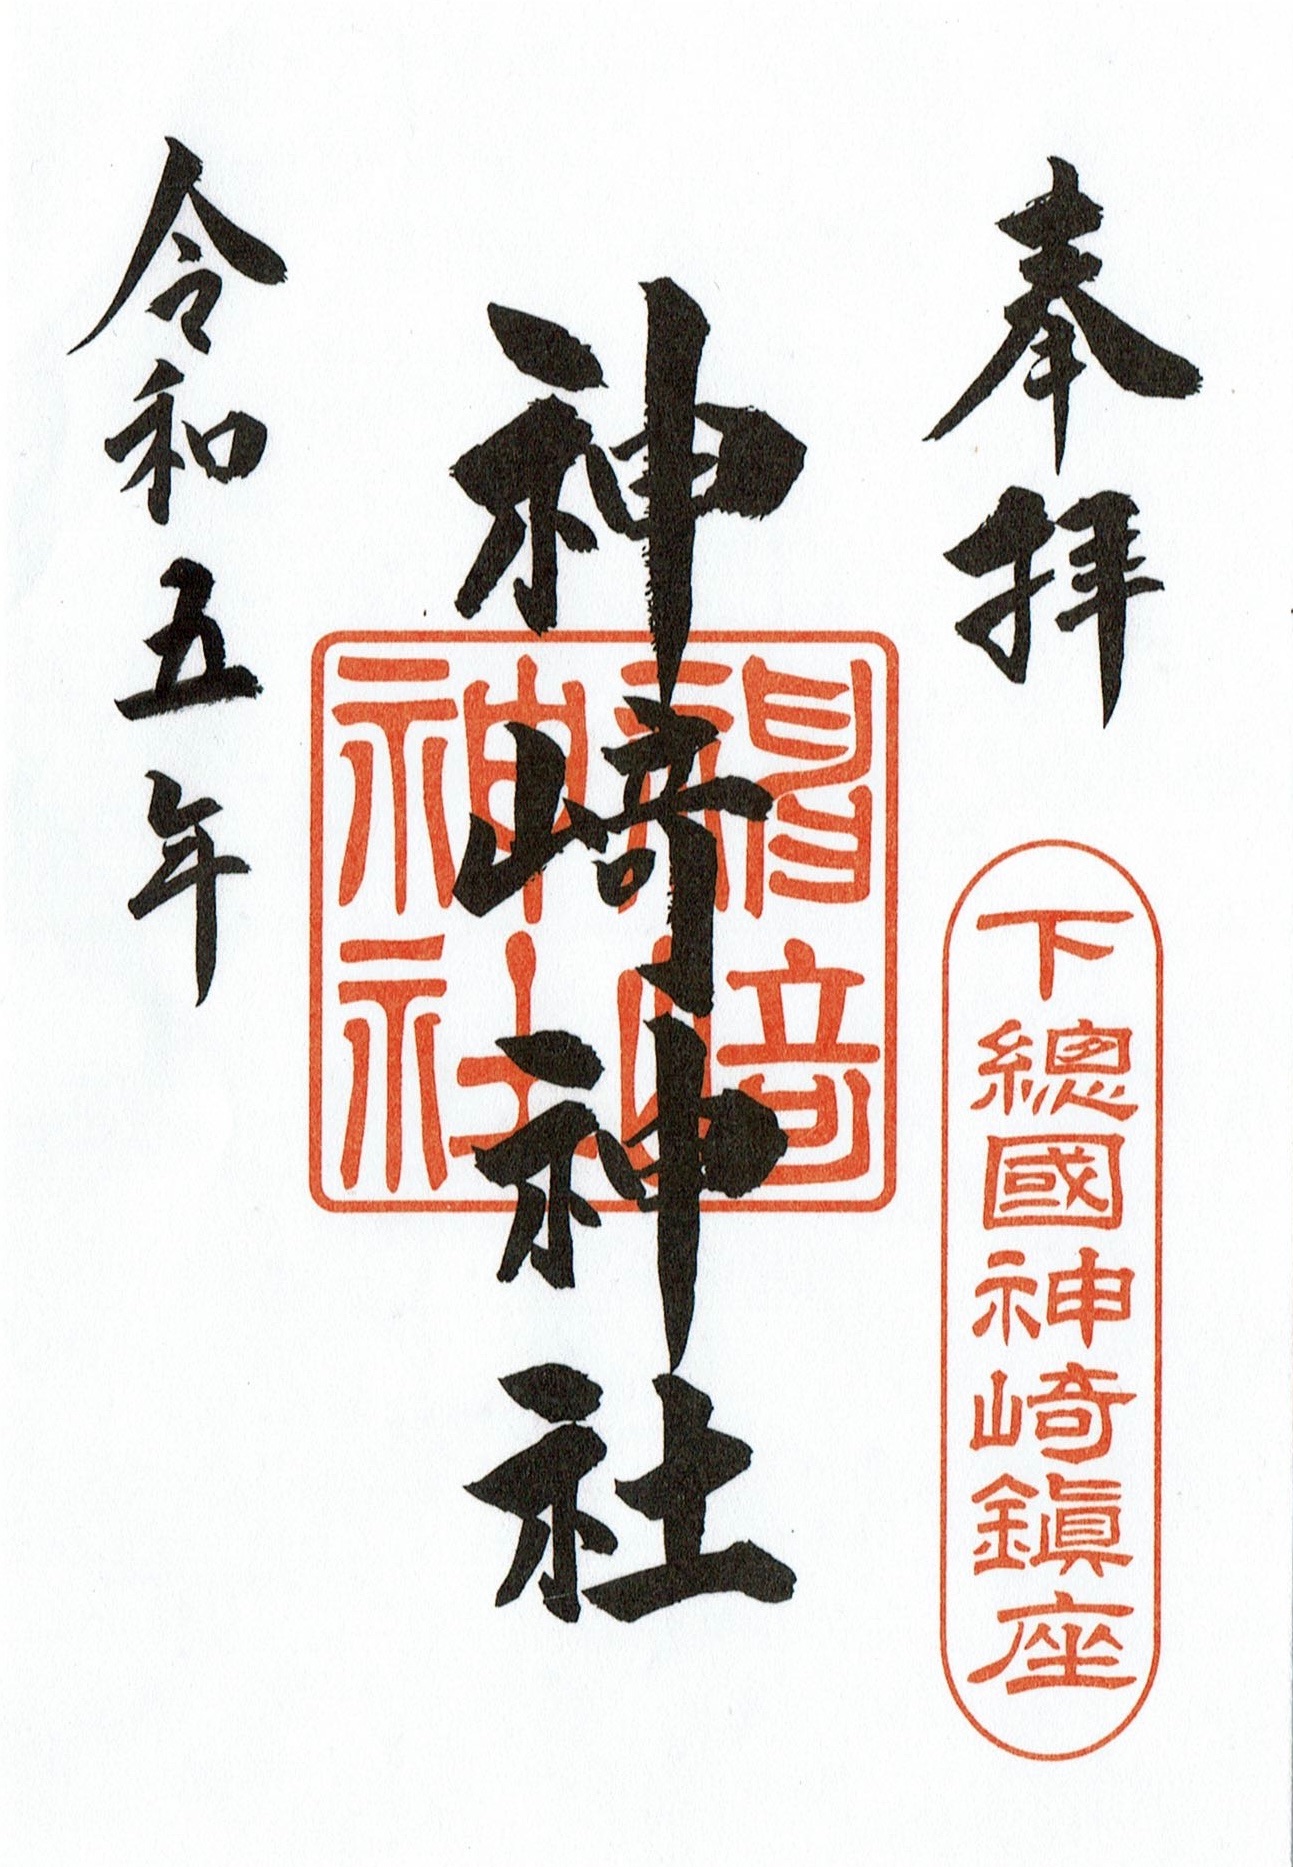 奉拝
下總國神崎鎮座
神崎神社
神崎
神社
令和五年